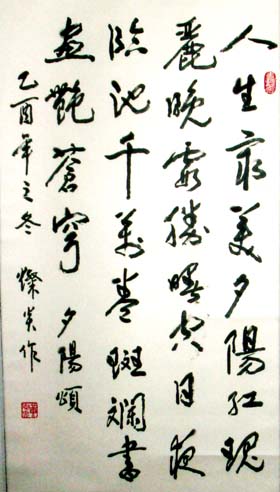 人生最美夕陽紅瑰
麗晚霞勝曙空日夜
臨池千萬卷斑斕書
畫艷蒼穹 夕陽頌
乙酉年之冬 燦作